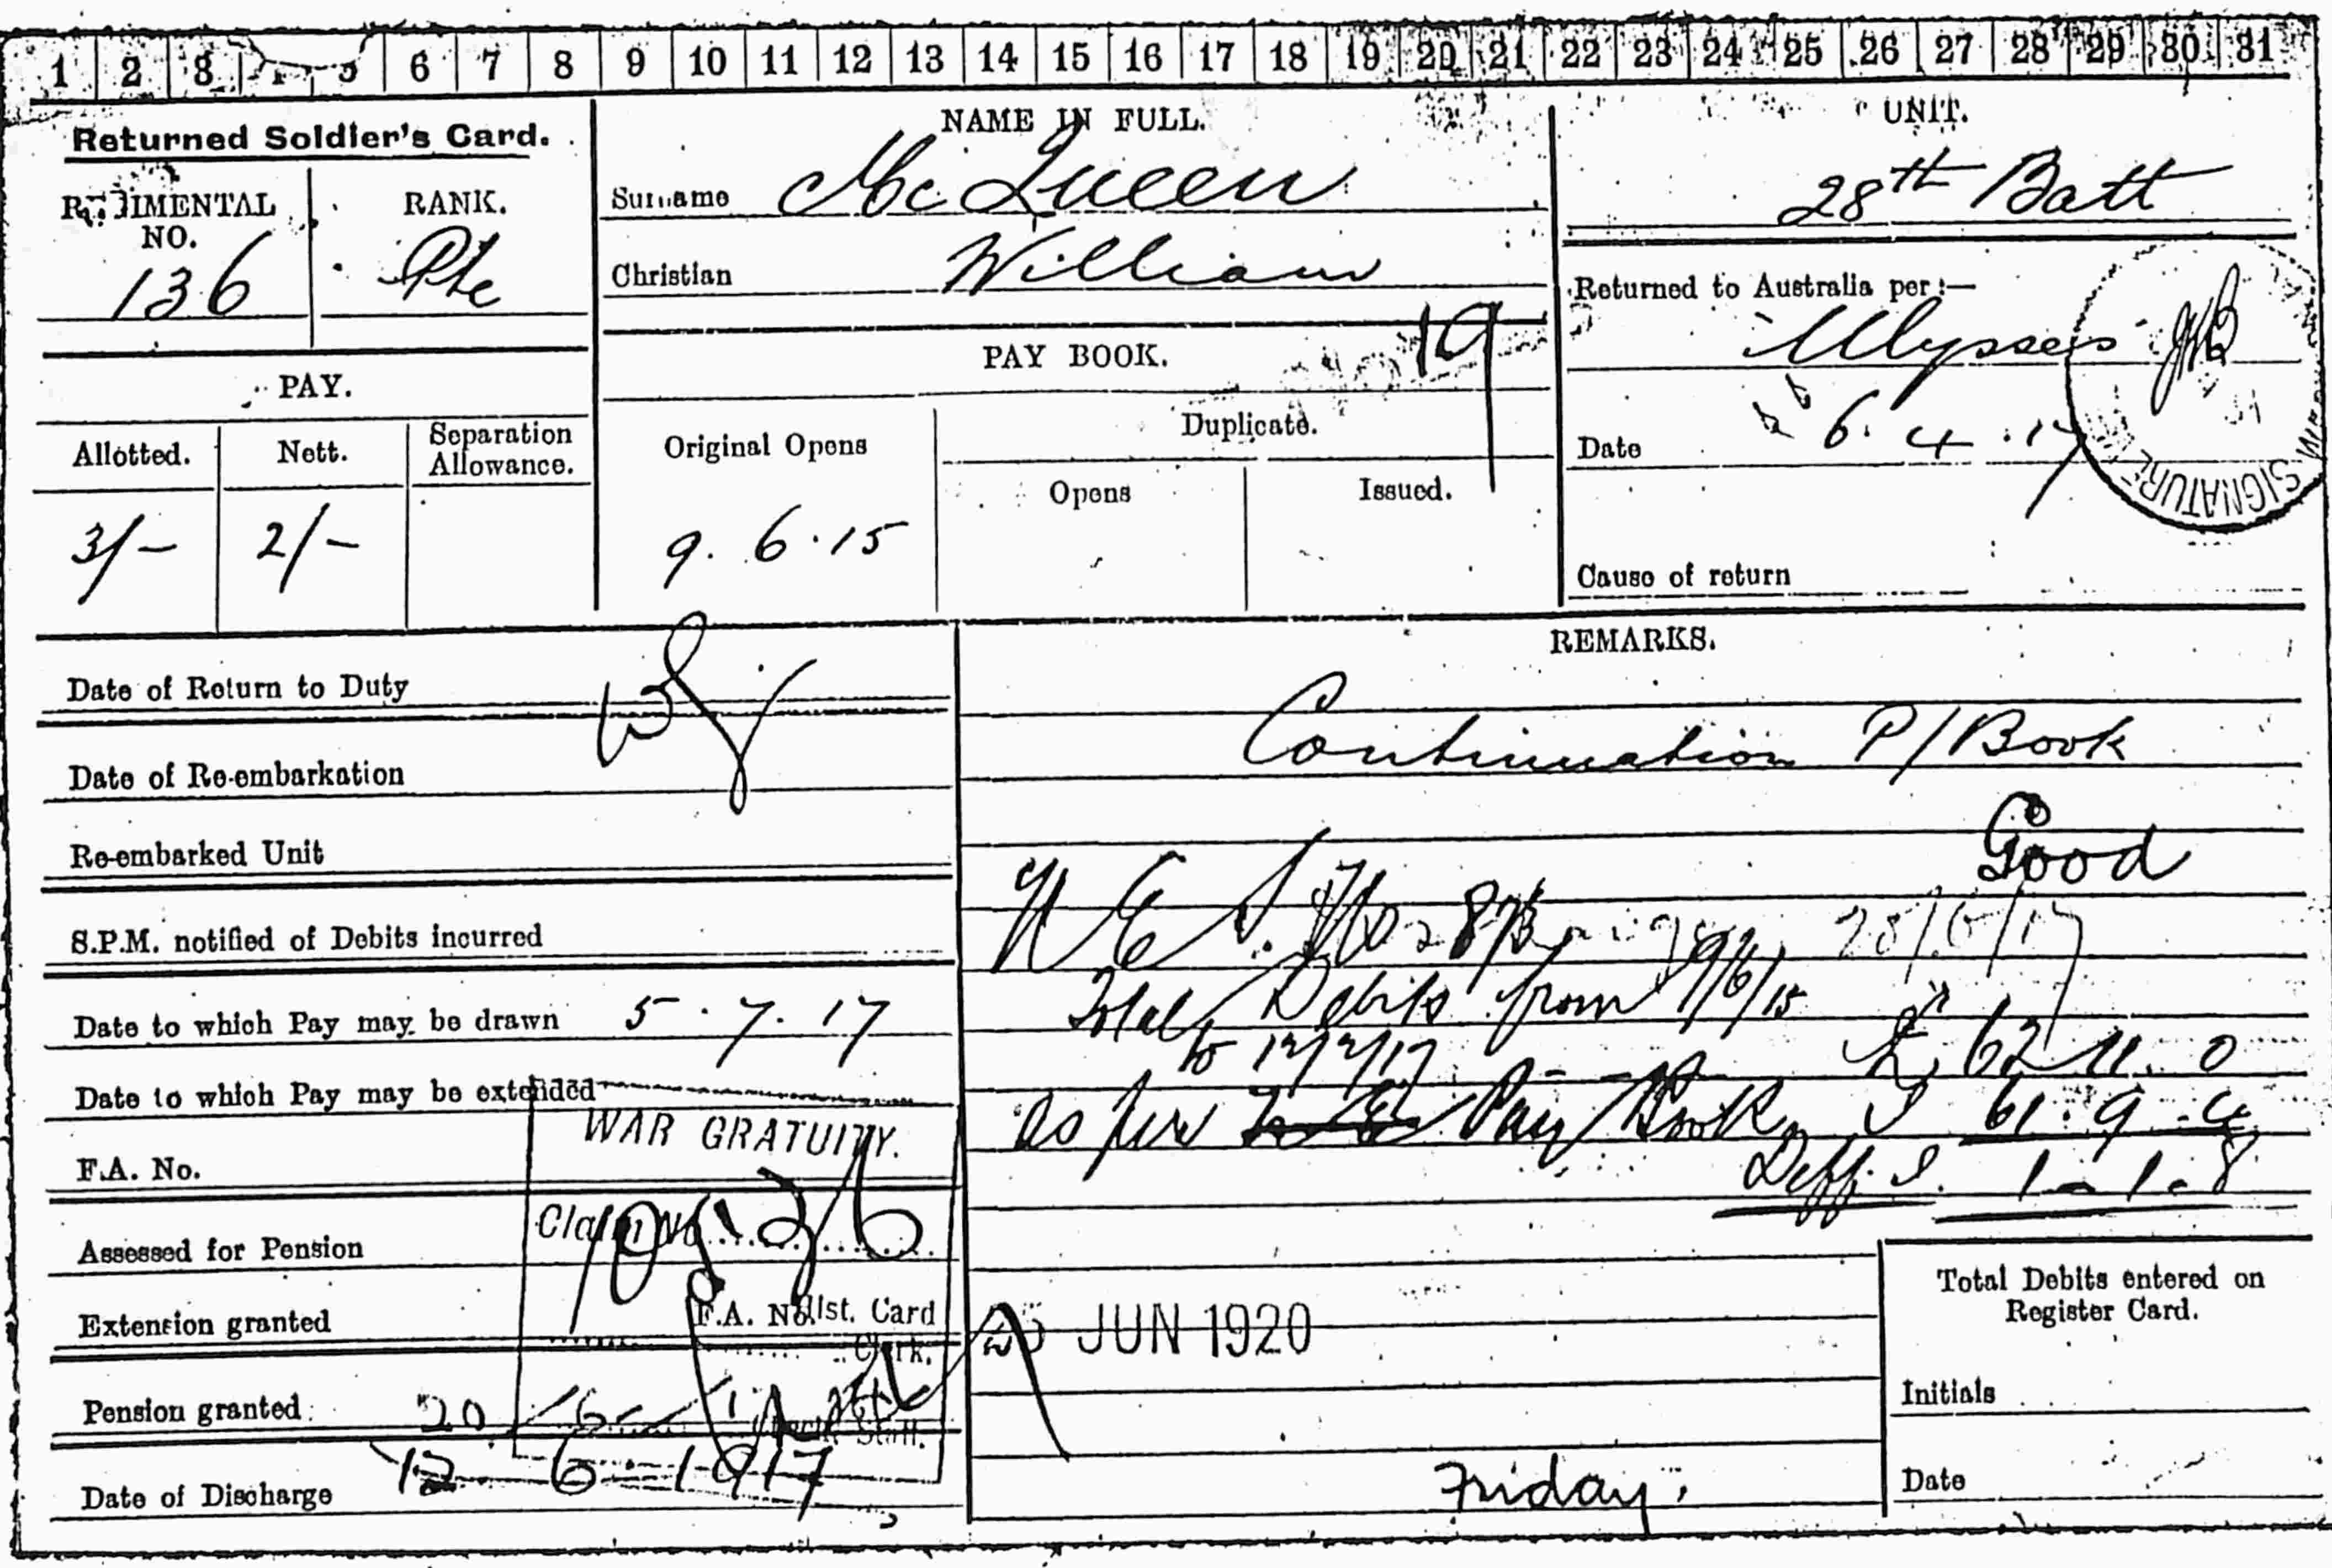 1 2 3 5 6 7 8 9 10 11 12 13 14 15 16 17 18 19 20 21 22 23 24 25 26 27 28 29 30 31
Returned Soldier's Card.
REGIMENTAL NO.
136
RANK.
Pte
NAME IN FULL.
Surname McQueen
Christian William
UNIT.
28th Batt
Returned to Australia per:—
Ulysses
Date 6.4.17
SIGNATURE
Cause of return
PAY.
Allotted.
Nett.
Separation
Allowance.
3/-
2/-
PAY BOOK.
19
Original Opens
Duplicate.
Opens
Issued.
9.6.15
Date of Return to Duty
Date of Re-embarkation
Re-embarked Unit
S.P.M. notified of Debits incurred
Date to which Pay may be drawn 5.7.17
Date to which Pay may be extended
F.A. No.
Assessed for Pension
Extension granted
Pension granted 20
Date of Discharge 12 6 1917
WAR GRATUITY.
Claim No
F.A. No. Ist. Card
Clerk.
Staff.
REMARKS.
Continuation P/Book
Good
Total Debits from 9/6/15
to £ 62.11.0
as per Pay Book 61.9.4
Diff. 1-1-8
JUN 1920
Friday.
Total Debits entered on
Register Card.
Initials
Date